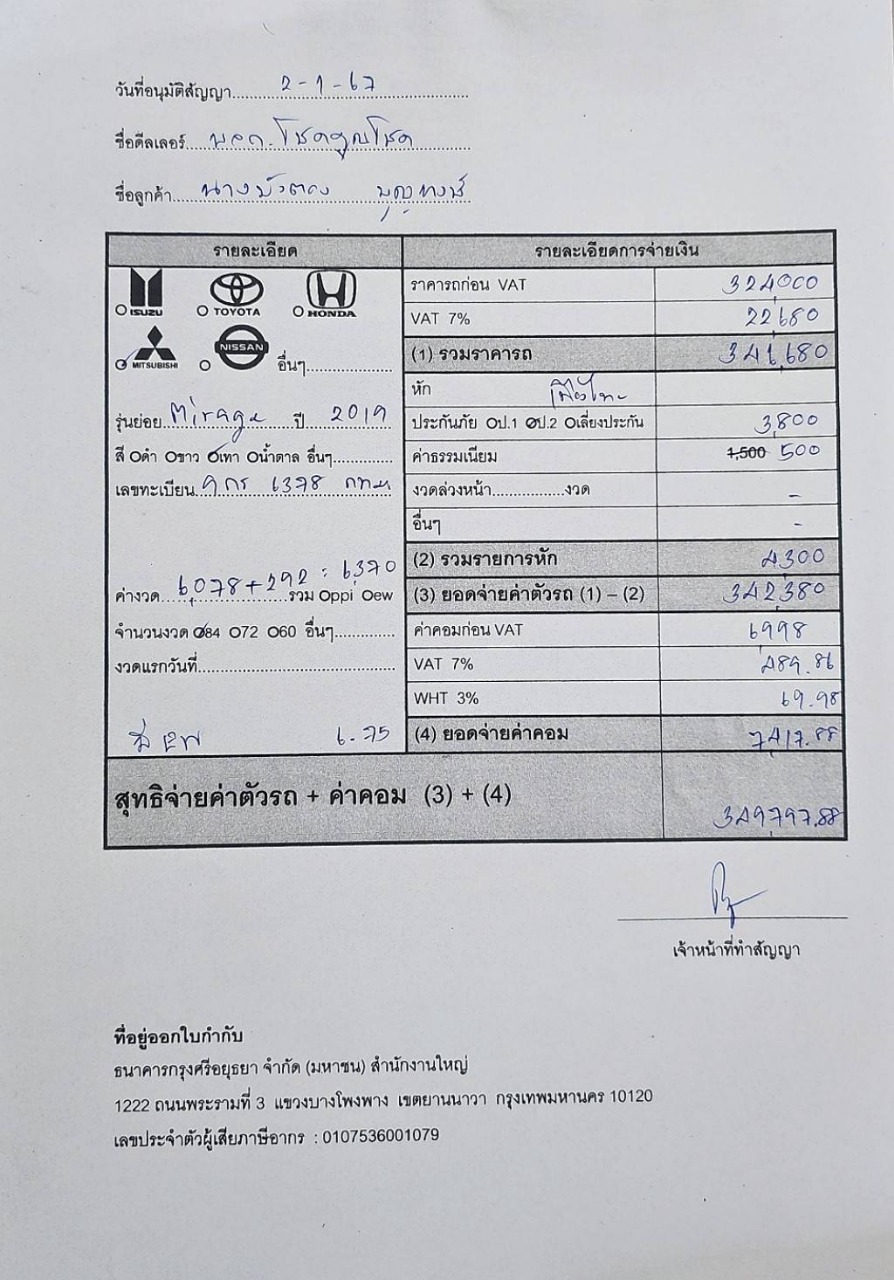 วันที่อนุมัติสัญญา 2-1-67
ชื่อดีลเลอร์ บจก.โชคคูณโชค
ชื่อลูกค้า นางบัวตอง
รายละเอียด
ISUZU TOYOTA HONDA
MITSUBISHI NISSAN อื่นๆ
รุ่นย่อย Mirage ปี 2019
สี ดำ ขาว เทา น้ำตาล อื่นๆ
เลขทะเบียน 9กร 6378 กทม
ค่างวด 6,078+292 = 6,370 รวม ppi ew
จำนวนงวด 84 72 60 อื่นๆ
งวดแรกวันที่
6.75
รายละเอียดการจ่ายเงิน
ราคารถก่อน VAT 324,000
VAT 7% 22,680
(1) รวมราคารถ 346,680
หัก เมืองไทย
ประกันภัย ป.1 ป.2 เลี่ยงประกัน 3,800
ค่าธรรมเนียม 1,500 500
งวดล่วงหน้า.................งวด -
อื่นๆ -
(2) รวมรายการหัก 4,300
(3) ยอดจ่ายค่าตัวรถ (1) – (2) 342,380
ค่าคอมก่อน VAT 6,998
VAT 7% 489.86
WHT 3% 69.98
(4) ยอดจ่ายค่าคอม 7,417.88
สุทธิจ่ายค่าตัวรถ + ค่าคอม (3) + (4) 349,797.88
เจ้าหน้าที่ทำสัญญา
ที่อยู่ออกใบกำกับ
ธนาคารกรุงศรีอยุธยา จำกัด (มหาชน) สำนักงานใหญ่
1222 ถนนพระรามที่ 3 แขวงบางโพงพาง เขตยานนาวา กรุงเทพมหานคร 10120
เลขประจำตัวผู้เสียภาษีอากร : 0107536001079